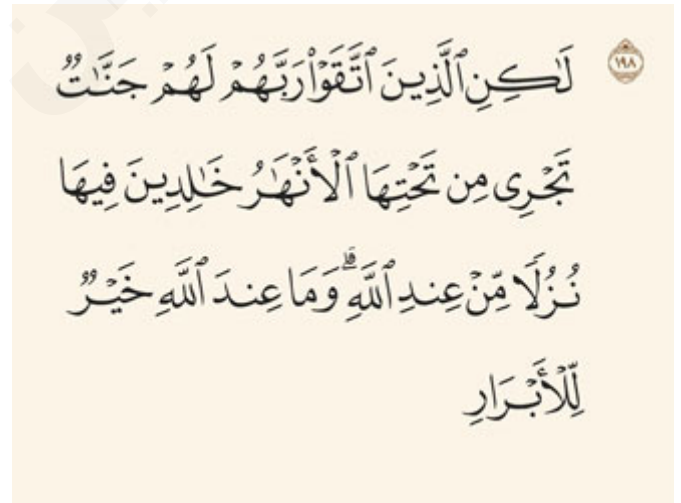 لَٰكِنِ ٱلَّذِينَ ٱتَّقَوْا۟ رَبَّهُمْ لَهُمْ جَنَّٰتٌ ١٩٨
تَجْرِى مِن تَحْتِهَا ٱلْأَنْهَٰرُ خَٰلِدِينَ فِيهَا
نُزُلًا مِّنْ عِندِ ٱللَّهِ ۗ وَمَا عِندَ ٱللَّهِ خَيْرٌ
لِّلْأَبْرَارِ